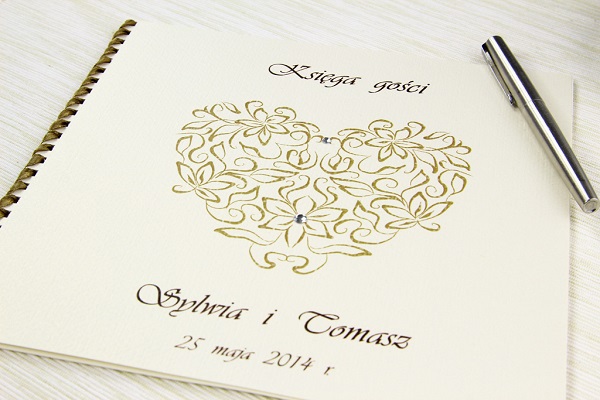 Księga gości
Sylwia i Tomasz
25 maja 2014 r.